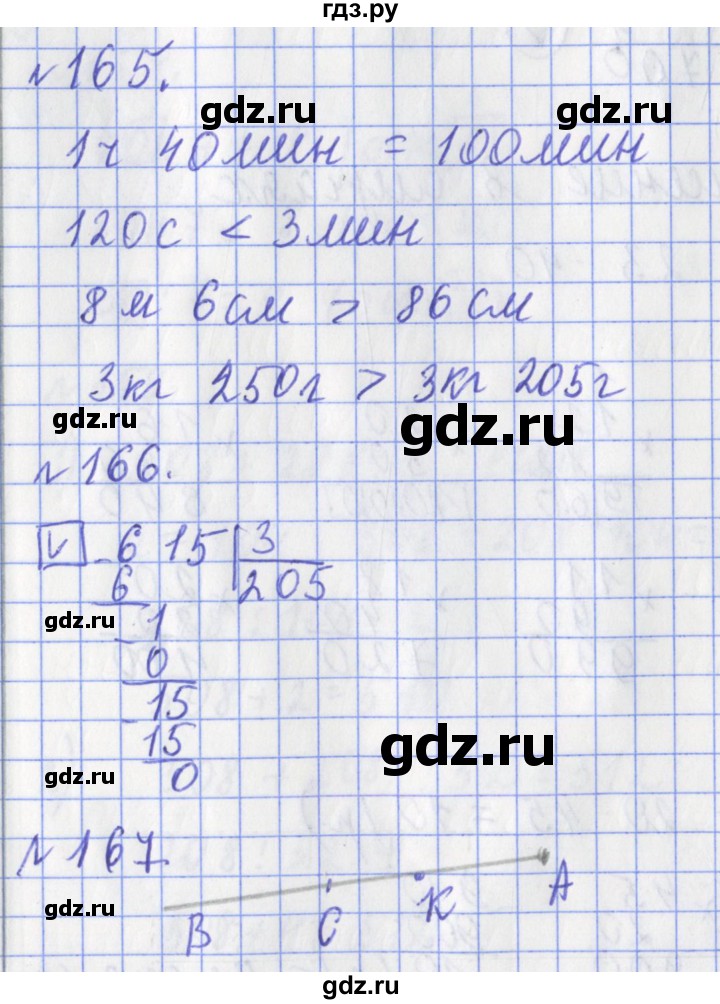 гдз.ру
№165.
gdz.ru gdz.ru
1ч 40мин = 100мин
120с < 3мин
8м 6см > 86см
3кг 250г > 3кг 205г
gdz.ru gdz.ru
№166.
√ 615 | 3
6 205
gdz.ru
1
0
15
15
gdz.ru
gdz.ru
0
№167.
gdz.ru
В С К А
gdz.ru